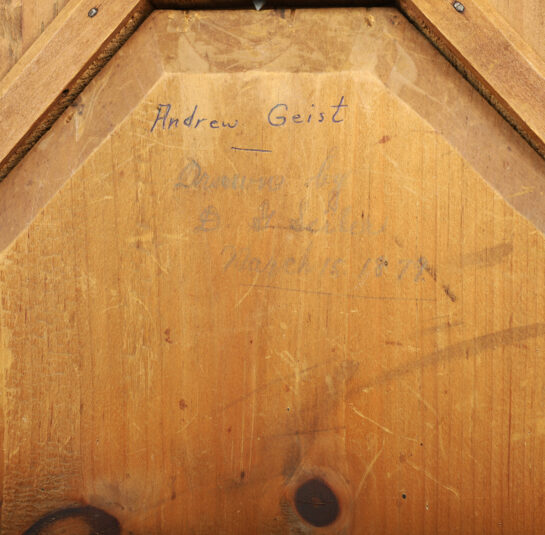 Andrew Geist
Drawing by
D.
March 15 1878